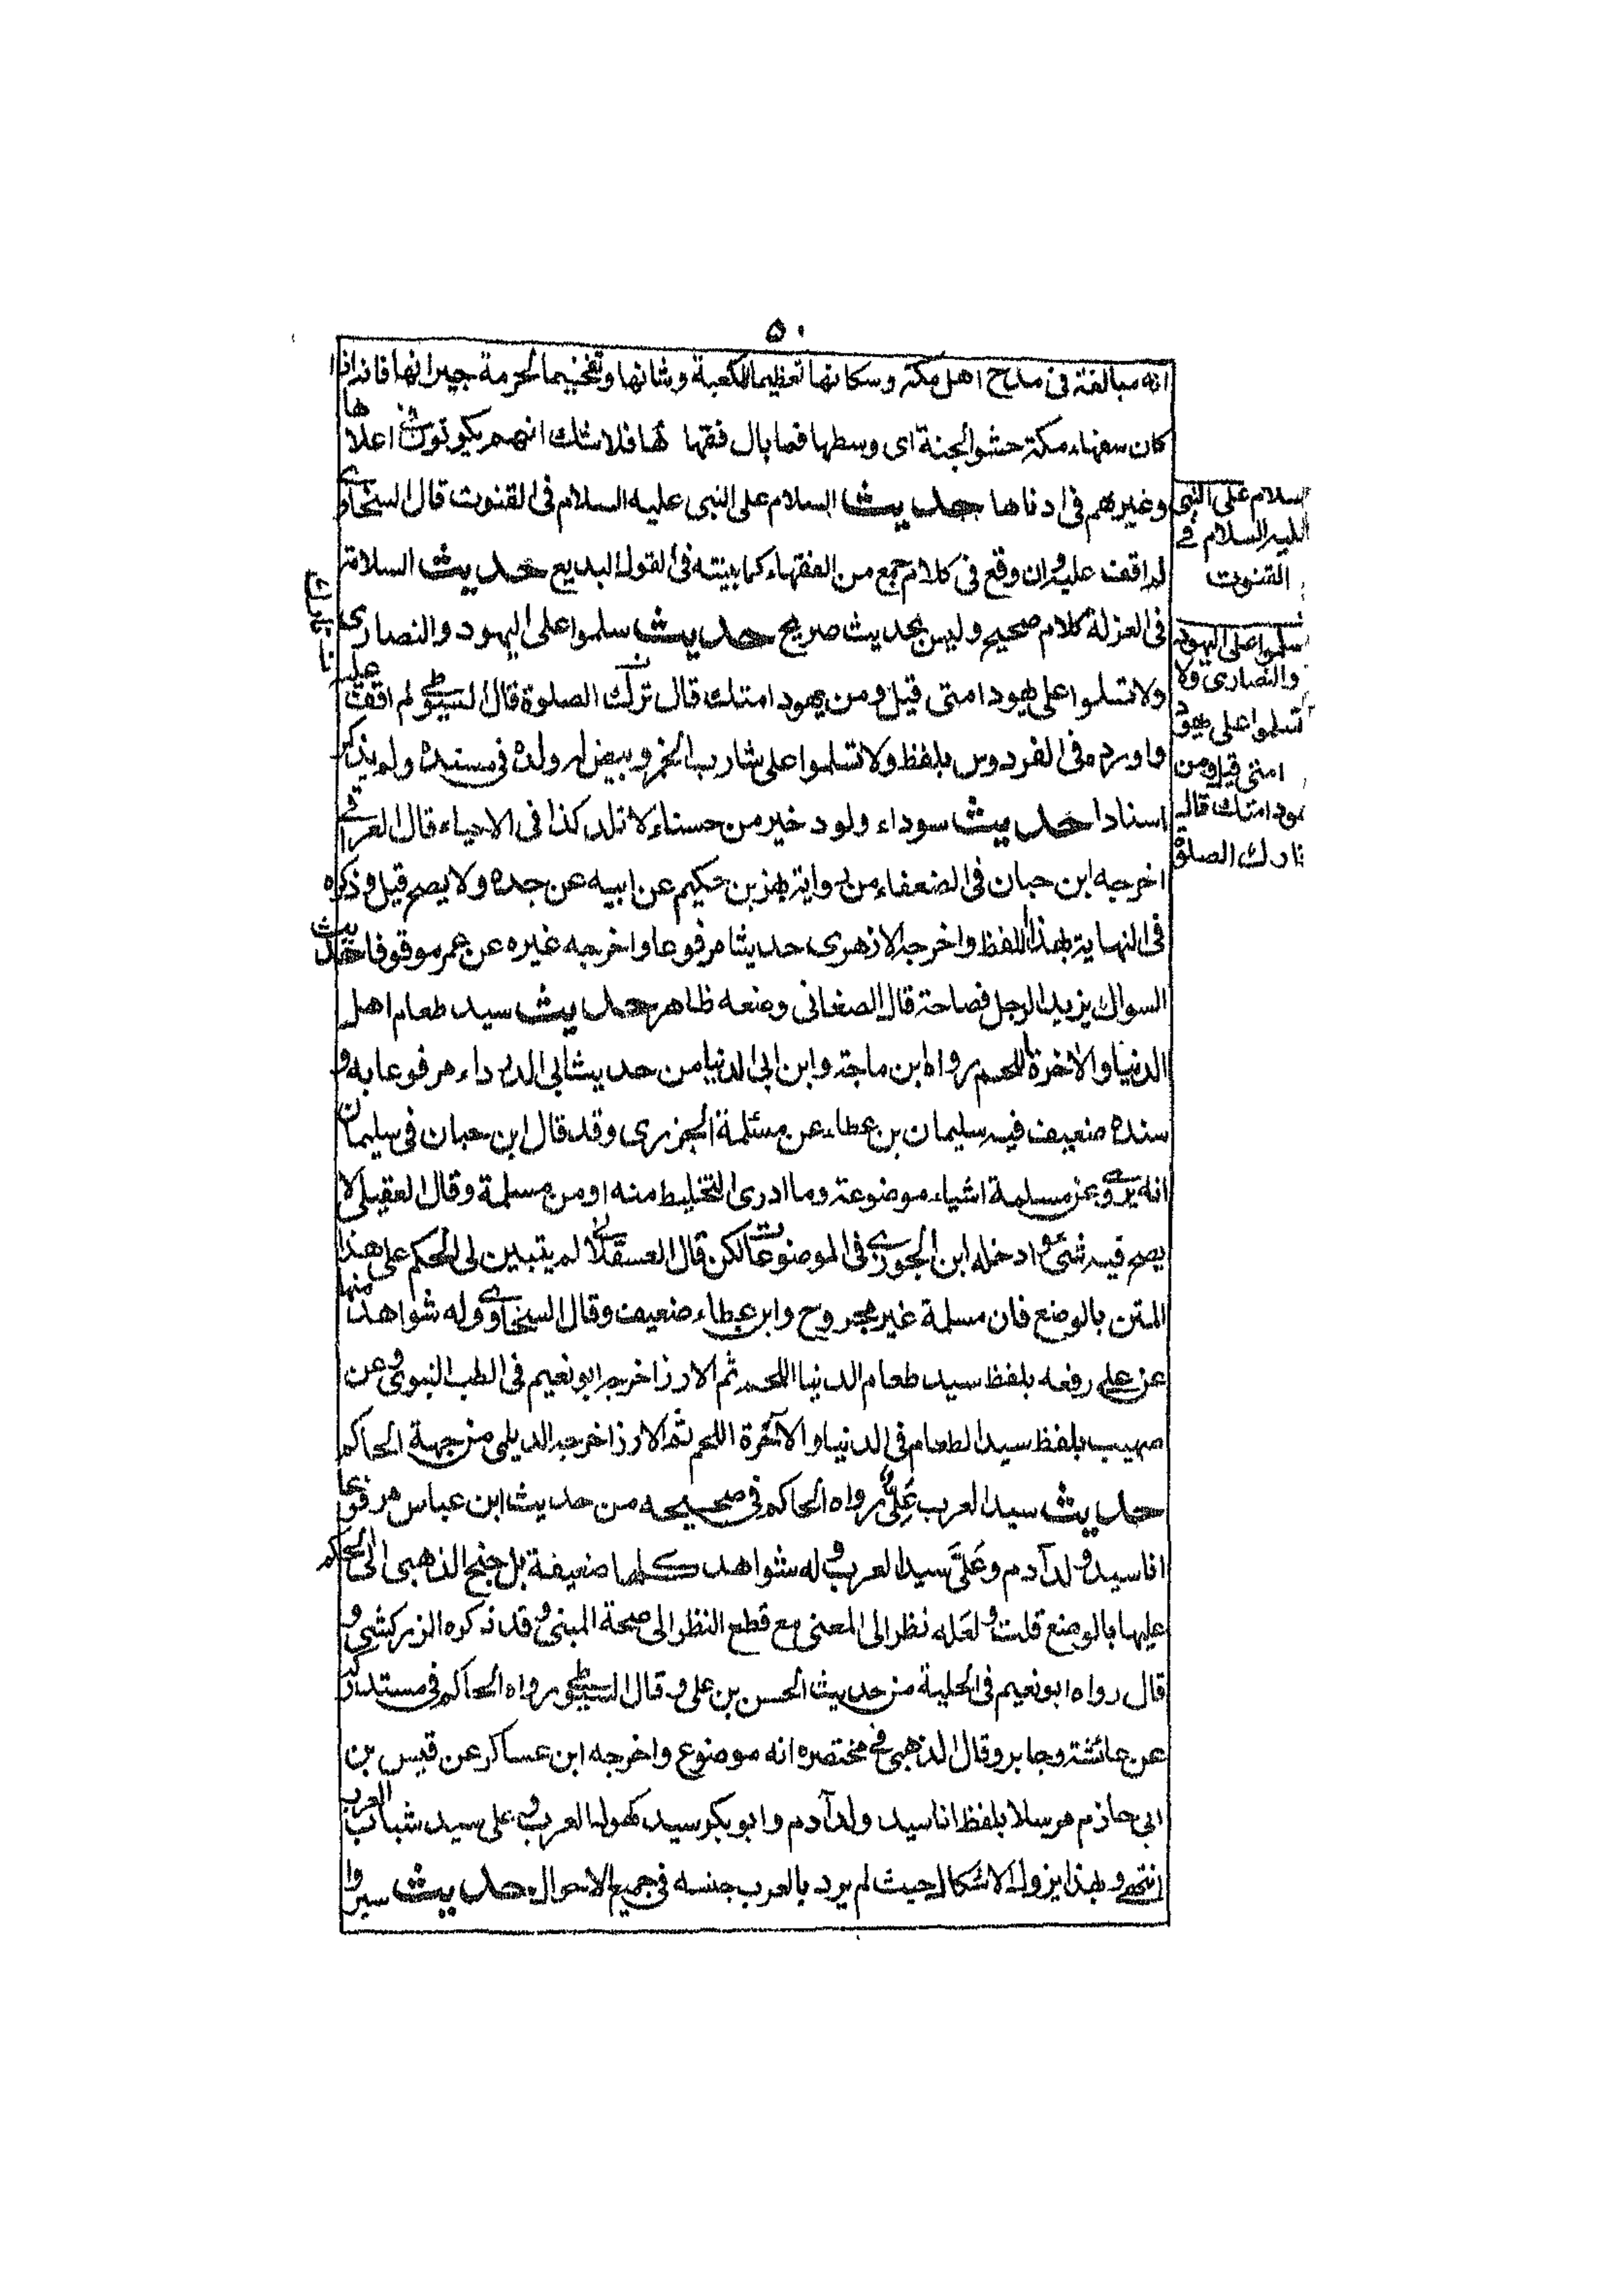 ٥٠
انه مبالغة فى مدح اهل مكة وسكانها تعظيما للكعبة وشانها وتفخيما لحرمة جيرانها فانه اذا
كان سفهاء مكة حشو الجنة اى وسطها فما بال فقهائها فلا شك انهم يكونون فى اعلاها
وغيرهم فى ادناها حديث السلام على النبى عليه السلام فى القنوت قال السخاوى
لم اقف عليه وان وقع فى كلام جمع من الفقهاء كما بينته فى القول البديع حديث السلامة
فى العزلة كلام صحيح وليس بحديث صريح حديث سلموا على اليهود والنصارى
ولا تسلموا على يهود امتى قيل ومن يهود امتك قال ترك الصلوة قال السيوطى لم اقف عليه
واورده فى الفردوس بلفظ ولا تسلموا على شارب الخمر وبيض له ولده فى مسنده ولم يذكر
اسنادا حديث سوداء ولود خير من حسناء لا تلد كذا فى الاحياء قال العراقى
اخرجه ابن حبان فى الضعفاء من رواية بهز بن حكيم عن ابيه عن جده ولا يصح قيل وذكره
فى النهاية بهذا اللفظ واخرجه الازهرى حديثا مرفوعا واخرجه غيره عن عمر موقوفا حديث
السواك يزيد الرجل فصاحة قال الصغانى وضعه ظاهر حديث سيد طعام اهل
الدنيا والاخرة اللحم رواه ابن ماجة وابن ابى الدنيا من حديث ابى الدرداء مرفوعا به و
سنده ضعيف فيه سليمان بن عطاء عن مسئلمة الجزرى وقد قال ابن حبان فى سليمان
انه يروى عن مسلمة اشياء موضوعة وما ادرى التخليط منه او من مسلمة وقال العقيلى لا
يصح فيه شئ وادخله ابن الجوزى فى الموضوعات لكن قال العسقلانى لم يتبين لى الحكم على هذا
المتن بالوضع فان مسلمة غير مجروح وابن عطاء ضعيف وقال السخاوى وله شواهد منها
عن على رفعه بلفظ سيد طعام الدنيا اللحم ثم الارز اخرجه ابو نعيم فى الطب النبوى وعن
صهيب بلفظ سيد الطعام فى الدنيا والآخرة اللحم ثم الارز اخرجه الديلمى من جهة الحاكم
حديث سيد العرب عَلِىٌّ رواه الحاكم فى صحيحه من حديث ابن عباس مرفوعا
انا سيد ولد آدم وعَلىّ سيد العرب وله شواهد كلها ضعيفة بل جنح الذهبى الى الحكم
عليها بالوضع قلت ولعله نظر الى المعنى مع قطع النظر الى صحة المبنى وقد ذكره الزركشى و
قال رواه ابو نعيم فى الحلية من حديث الحسن بن على وقال السيوطى رواه الحاكم فى مستدركه
عن عائشة وجابر وقال الذهبى فى مختصره انه موضوع واخرجه ابن عساكر عن قيس بن
ابى حازم مرسلا بلفظ انا سيد ولد آدم وابو بكر سيد كهول العرب وعلى سيد شباب العرب
انتهى وبهذا يزول الاشكال حيث لم يرد بالعرب جنسه فى جميع الاحوال حديث سيروا
سلام على النبى
عليه السلام فى
القنوت
سلموا على اليهود
والنصارى ولا
تسلموا على يهود
امتى قيل ومن
يهود امتك قال
تارك الصلوة